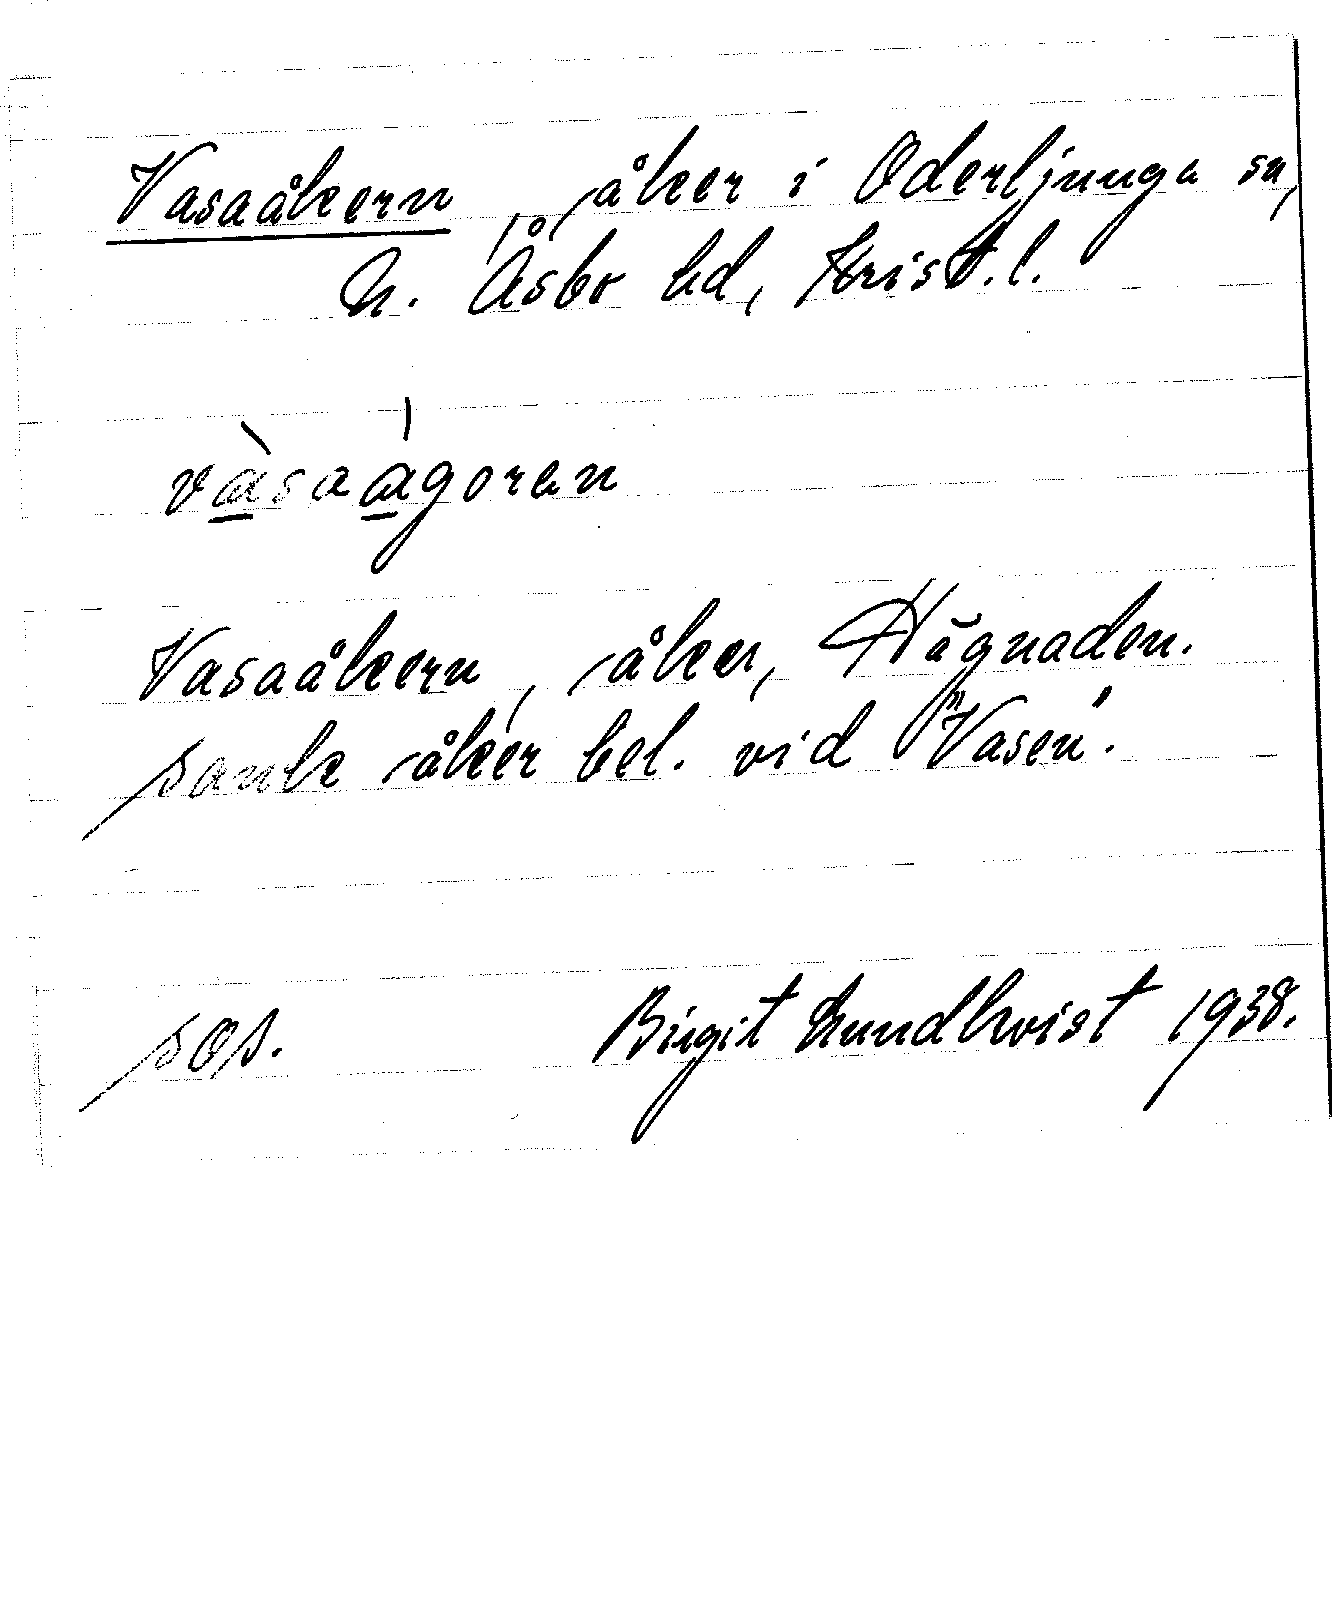 Vasaåkern, åker i Oderljunga sn,
N. Åsbo hd, Krist. l.
vàsaágoren
Vasaåkern, åker, Hägnaden.
Sank åker bel. vid "Vasen".
SOS. Birgit Lundkvist 1938.